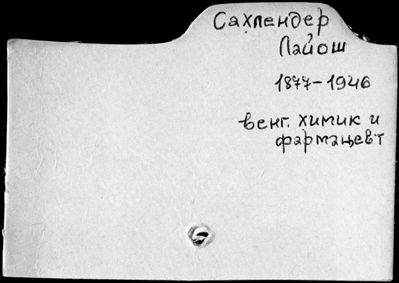 Сахлендер
Лайош
1877-1946
венг. химик и
фармацевт